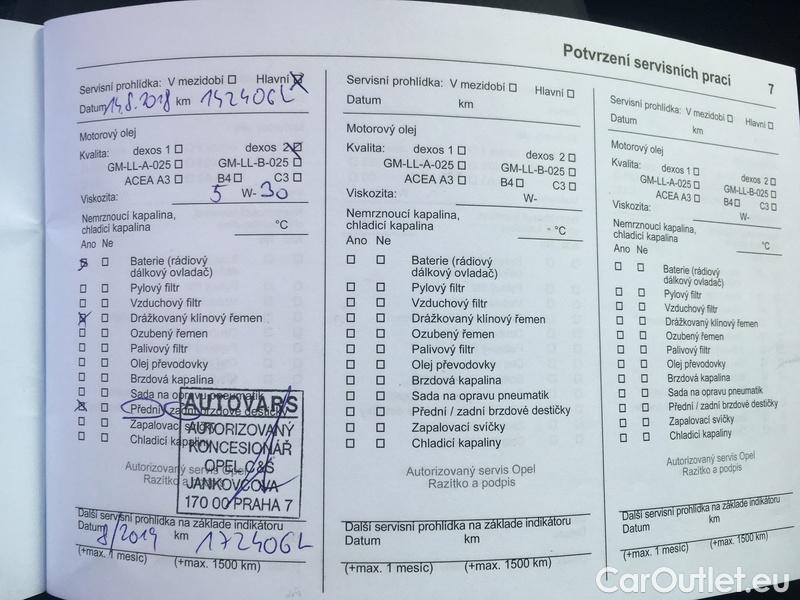 Potvrzení servisních prací 7
Servisní prohlídka: V mezidobí Hlavní
Datum 14.8.2018 km 142406L
Motorový olej
Kvalita: dexos 1 dexos 2
GM-LL-A-025 GM-LL-B-025
ACEA A3 B4 C3
Viskozita: 5 W- 30
Nemrznoucí kapalina,
chladicí kapalina °C
Ano Ne
Baterie (rádiový
dálkový ovladač)
Pylový filtr
Vzduchový filtr
Drážkovaný klínový řemen
Ozubený řemen
Palivový filtr
Olej převodovky
Brzdová kapalina
Sada na opravu pneumatik
Přední / zadní brzdové destičky
Zapalovací svíčky
Chladicí kapaliny
Autorizovaný servis Opel
Razítko a podpis
AUTOVARS
AUTORIZOVANÝ
KONCESIONÁŘ
OPEL C&S
JANKOVCOVA
170 00 PRAHA 7
Další servisní prohlídka na základe indikátoru
Datum 8/2019 km 172406L
(+max. 1 mesíc) (+max. 1500 km)
Servisní prohlídka: V mezidobí Hlavní
Datum km
Motorový olej
Kvalita: dexos 1 dexos 2
GM-LL-A-025 GM-LL-B-025
ACEA A3 B4 C3
Viskozita: W-
Nemrznoucí kapalina,
chladicí kapalina - °C
Ano Ne
Baterie (rádiový
dálkový ovladač)
Pylový filtr
Vzduchový filtr
Drážkovaný klínový řemen
Ozubený řemen
Palivový filtr
Olej převodovky
Brzdová kapalina
Sada na opravu pneumatik
Přední / zadní brzdové destičky
Zapalovací svíčky
Chladicí kapaliny
Autorizovaný servis Opel
Razítko a podpis
Další servisní prohlídka na základe indikátoru
Datum km
(+max. 1 mesíc) (+max. 1500 km)
Servisní prohlídka: V mezidobí Hlavní
Datum km
Motorový olej
Kvalita: dexos 1 dexos 2
GM-LL-A-025 GM-LL-B-025
ACEA A3 B4 C3
Viskozita: W-
Nemrznoucí kapalina,
chladicí kapalina °C
Ano Ne
Baterie (rádiový
dálkový ovladač)
Pylový filtr
Vzduchový filtr
Drážkovaný klínový řemen
Ozubený řemen
Palivový filtr
Olej převodovky
Brzdová kapalina
Sada na opravu pneumatik
Přední / zadní brzdové destičky
Zapalovací svíčky
Chladicí kapaliny
Autorizovaný servis Opel
Razítko a podpis
Další servisní prohlídka na základe indikátoru
Datum km
(+max. 1 mesíc) (+max. 1500 km)
CarOutlet.eu